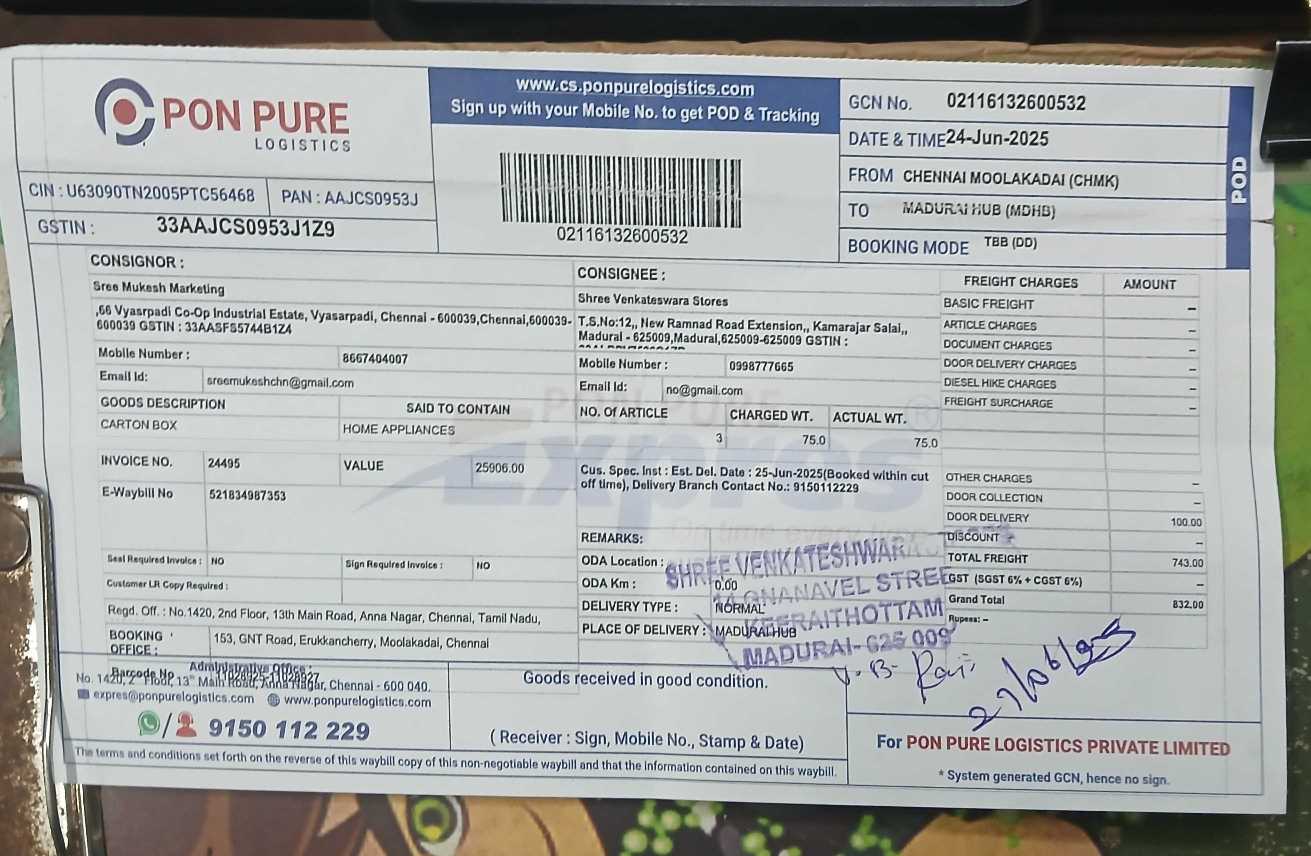 PON PURE
LOGISTICS
www.cs.ponpurelogistics.com
Sign up with your Mobile No. to get POD & Tracking
02116132600532
GCN No. 02116132600532
DATE & TIME 24-Jun-2025
FROM CHENNAI MOOLAKADAI (CHMK)
TO MADURAI HUB (MDHB)
BOOKING MODE TBB (DD)
POD
CIN : U63090TN2005PTC56468 PAN : AAJCS0953J
GSTIN : 33AAJCS0953J1Z9
CONSIGNOR :
Sree Mukesh Marketing
,66 Vyasrpadi Co-Op Industrial Estate, Vyasarpadi, Chennai - 600039,Chennai,600039-
600039 GSTIN : 33AASFS5744B1Z4
Mobile Number : 8667404007
Email Id: sreemukeshchn@gmail.com
GOODS DESCRIPTION SAID TO CONTAIN
CARTON BOX HOME APPLIANCES
INVOICE NO. 24495 VALUE 25906.00
E-Waybill No 521834987353
Seal Required Invoice : NO Sign Required Invoice : NO
Customer LR Copy Required :
Regd. Off. : No.1420, 2nd Floor, 13th Main Road, Anna Nagar, Chennai, Tamil Nadu,
BOOKING OFFICE : 153, GNT Road, Erukkancherry, Moolakadai, Chennai
CONSIGNEE :
Shree Venkateswara Stores
T.S.No:12,, New Ramnad Road Extension,, Kamarajar Salai,,
Madurai - 625009,Madurai,625009-625009 GSTIN :
Mobile Number : 0998777665
Email Id: no@gmail.com
NO. Of ARTICLE CHARGED WT. ACTUAL WT.
3 75.0 75.0
Cus. Spec. Inst : Est. Del. Date : 25-Jun-2025(Booked within cut
off time), Delivery Branch Contact No.: 9150112229
REMARKS:
ODA Location :
ODA Km : 0.00
DELIVERY TYPE : NORMAL
PLACE OF DELIVERY : MADURAI HUB
FREIGHT CHARGES AMOUNT
BASIC FREIGHT –
ARTICLE CHARGES –
DOCUMENT CHARGES –
DOOR DELIVERY CHARGES –
DIESEL HIKE CHARGES –
FREIGHT SURCHARGE –
OTHER CHARGES –
DOOR COLLECTION –
DOOR DELIVERY 100.00
DISCOUNT –
TOTAL FREIGHT 743.00
GST (SGST 6% + CGST 6%) –
Grand Total 832.00
Rupees: –
PON PURE
Expres ®
On time every time
SHREE VENKATESHWARA
14 GNANAVEL STREE
KEERAITHOTTAM
MADURAI-625 009
V. B- Raji
27/06/25
Barcode No
Administrative Office :
11028925-11028927
No. 1420, 2nd Floor 13th Main Road, Anna Nagar, Chennai - 600 040.
expres@ponpurelogistics.com www.ponpurelogistics.com
/ 9150 112 229
Goods received in good condition.
( Receiver : Sign, Mobile No., Stamp & Date)
The terms and conditions set forth on the reverse of this waybill copy of this non-negotiable waybill and that the information contained on this waybill.
For PON PURE LOGISTICS PRIVATE LIMITED
* System generated GCN, hence no sign.